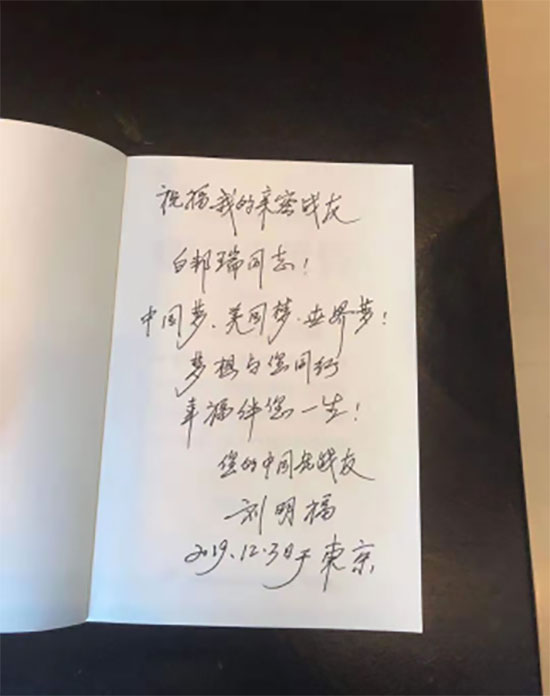 祝福我的亲密战友
白邦瑞同志!
中国梦、美国梦、世界梦!
梦想与您同行
幸福伴您一生!
您的中国老战友
刘明福
2019.12.3日于東京